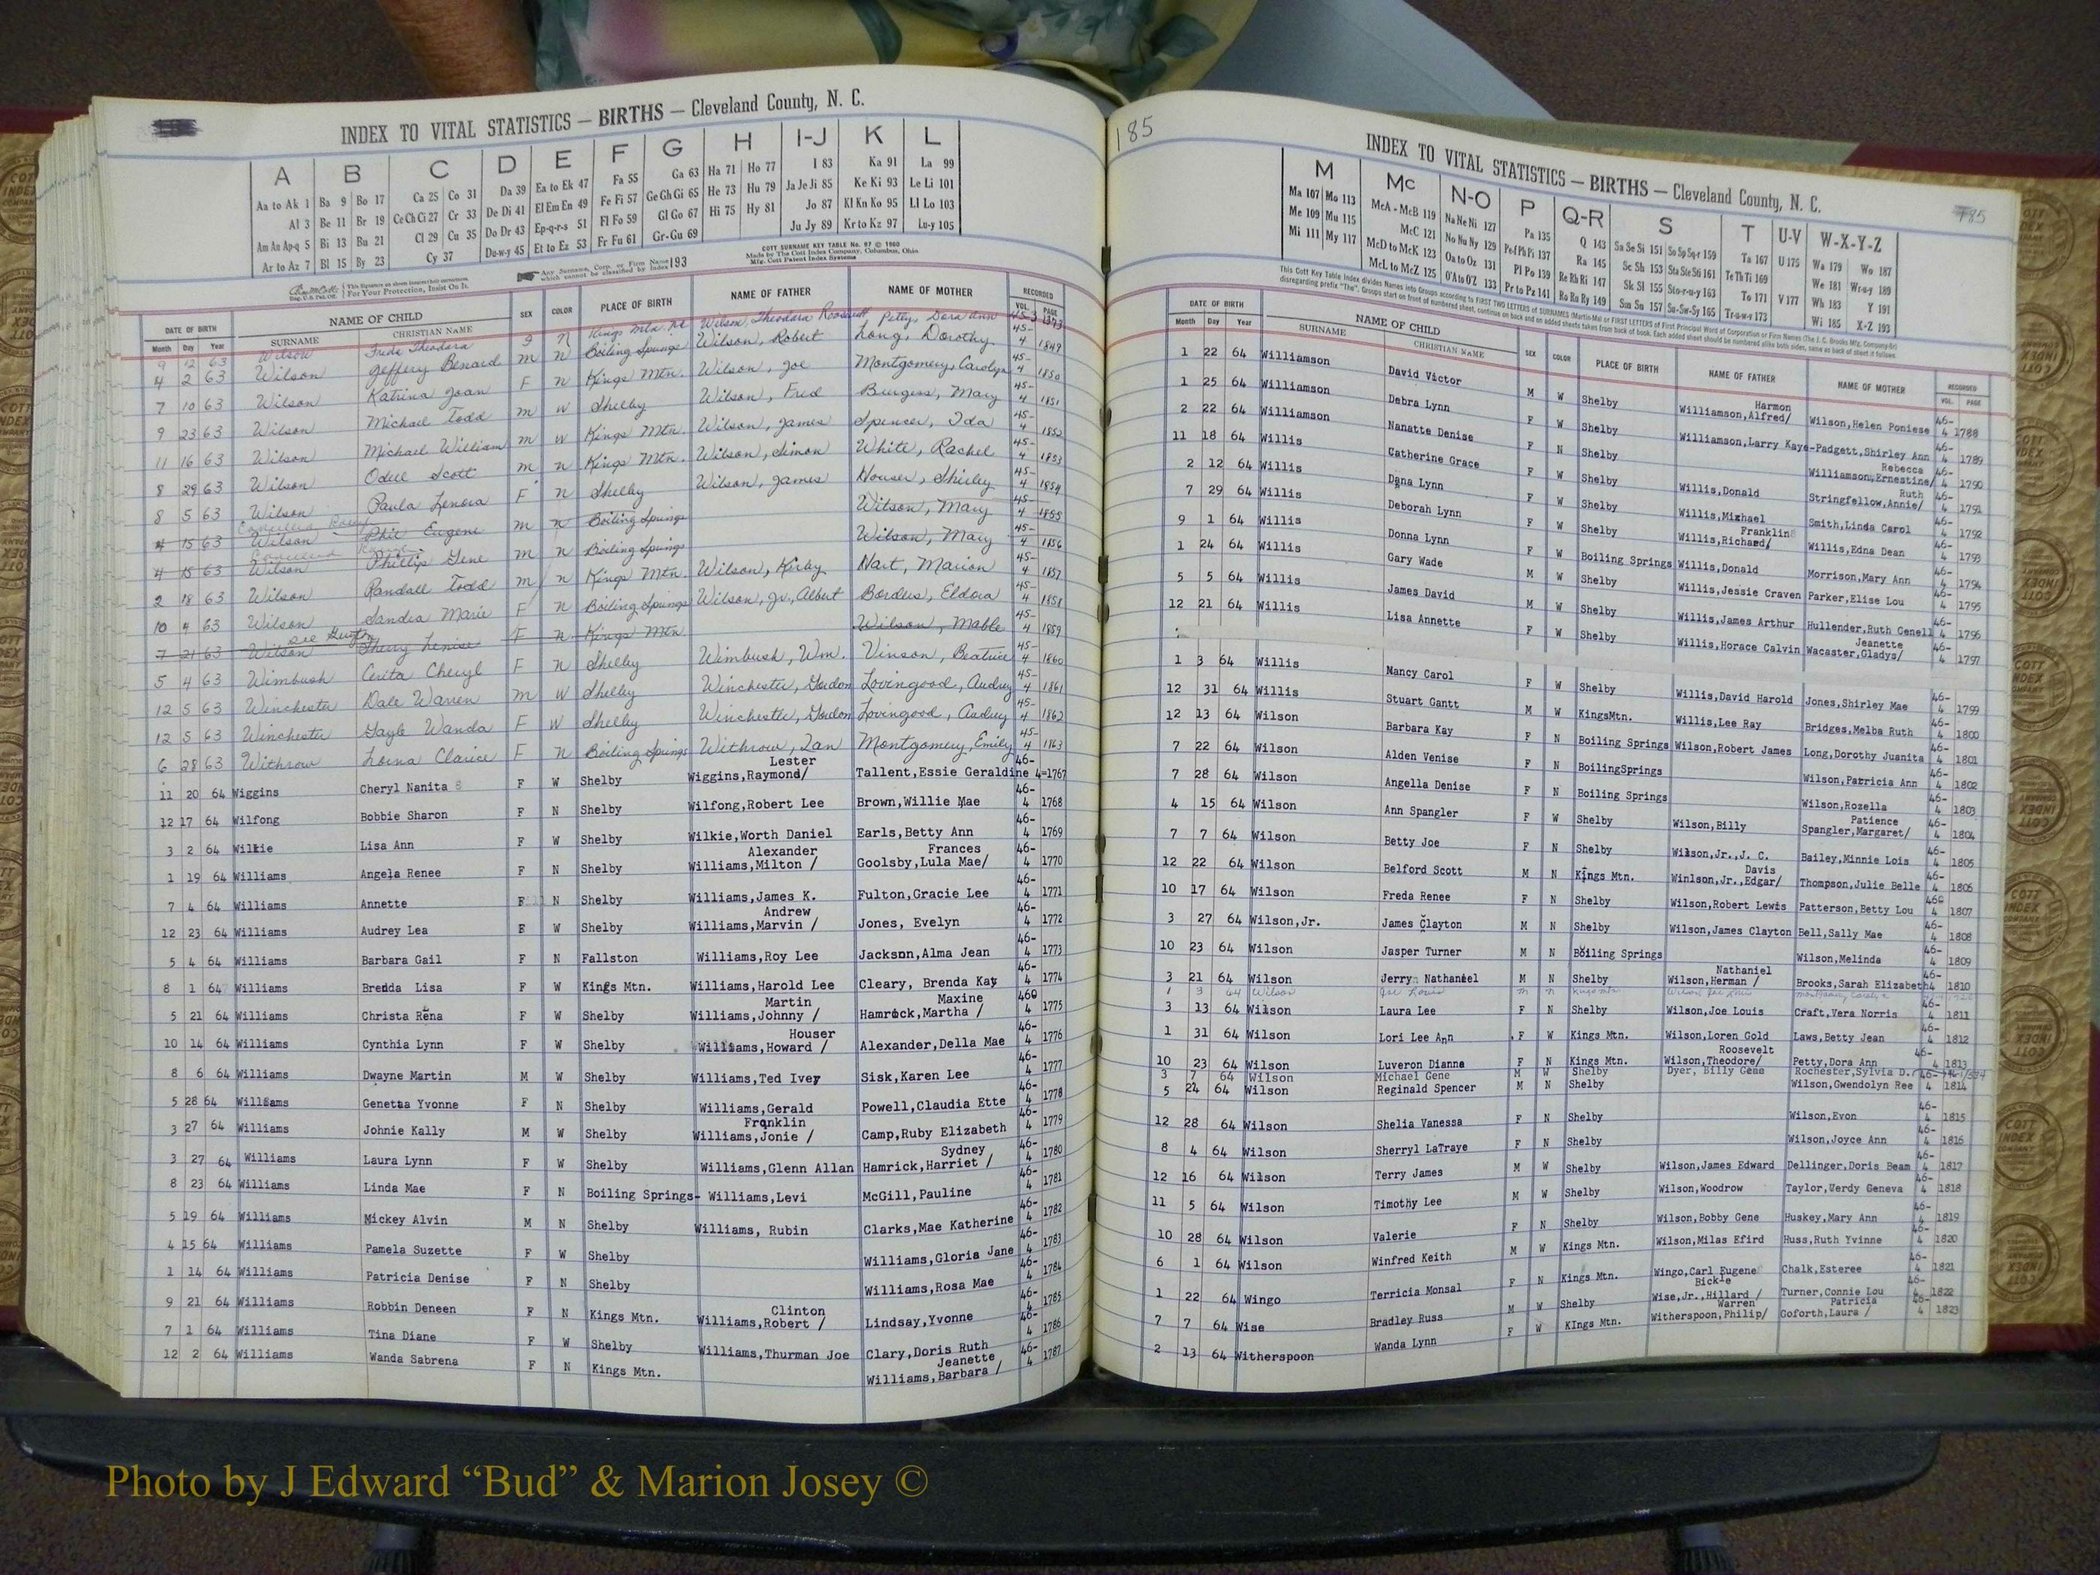 INDEX TO VITAL STATISTICS — BIRTHS — Cleveland County, N. C.
A B C D E F G H I-J K L
Aa to Ak 1 Ba 9 Bo 17 Ca 25 Co 31 Da 39 Ea to Ek 47 Fa 55 Ga 63 Ha 71 Ho 77 I 83 Ka 91 La 99
Al 3 Be 11 Br 19 Ce Ch Ci 27 Cr 33 De Di 41 El Em En 49 Fe Fi 57 Ge Gh Gi 65 He 73 Hu 79 Ja Je Ji 85 Ke Ki 93 Le Li 101
Am An Ap-q 5 Bi 13 Bu 21 Cl 29 Cu 35 Do Dr 43 Ep-q-r-s 51 Fl Fo 59 Gl Go 67 Hi 75 Hy 81 Jo 87 Kl Kn Ko 95 Ll Lo 103
Ar to Az 7 Bl 15 By 23 Cy 37 Du-w-y 45 Et to Ez 53 Fr Fu 61 Gr-Gu 69 Ju Jy 89 Kr to Kz 97 Lu-y 105
COTT SURNAME KEY TABLE No. 97 © 1960
Made by The Cott Index Company, Columbus, Ohio
Mfg. Cott Patent Index Systems
This Signature on sheets insures their correctness
For Your Protection, Insist On It.
Any Surname, Corp. or Firm Name which cannot be classified by Index 193
DATE OF BIRTH NAME OF CHILD SEX COLOR PLACE OF BIRTH NAME OF FATHER NAME OF MOTHER RECORDED
Month Day Year SURNAME CHRISTIAN NAME VOL. PAGE
9 12 63 Wilson Freda Theodora N Kings Mtn Wilson, Theodore Roosevelt Petty, Dora Ann 45-3 1373
4 2 63 Wilson Jeffery Benard M N Boiling Springs Wilson, Robert Long, Dorothy 45-4 1849
7 10 63 Wilson Katrina Joan F N Kings Mtn. Wilson, Joe Montgomery, Carolyn 45-4 1850
9 23 63 Wilson Michael Todd M W Shelby Wilson, Fred Burgess, Mary 45-4 1851
11 16 63 Wilson Michael William M W Kings Mtn. Wilson, James Spencer, Ida 45-4 1852
8 29 63 Wilson Odell Scott M N Kings Mtn. Wilson, Simon White, Rachel 45-4 1853
8 5 63 Wilson Paula Lenora F N Shelby Wilson, James Houser, Shirley 45-4 1854
4 15 63 Wilson Phil Eugene M N Boiling Springs Wilson, Mary 45-4 1855
4 15 63 Wilson Phillip Gene M N Boiling Springs Wilson, Mary 45-4 1856
2 18 63 Wilson Randall Todd M N Kings Mtn. Wilson, Kirby Hart, Marion 45-4 1857
10 4 63 Wilson Sandra Marie F N Boiling Springs Wilson, Jr., Albert Borders, Eldora 45-4 1858
7 21 63 Wilson Sherry Lenise F N Kings Mtn. Wilson, Mable 45-4 1859
5 4 63 Wimbush Cerita Cheryl F N Shelby Wimbush, Wm. Vinson, Beatrice 45-4 1860
12 5 63 Winchester Dale Warren M W Shelby Winchester, Gordon Lovingood, Audrey 45-4 1861
12 5 63 Winchester Gayle Wanda F W Shelby Winchester, Gordon Lovingood, Audrey 45-4 1862
6 28 63 Withrow Lorna Clarice F N Boiling Springs Withrow, Zan Montgomery, Emily 45-4 1863
11 20 64 Wiggins Cheryl Nanita F W Shelby Wiggins,Raymond/ Lester Tallent,Essie Geraldine 46-4-1767
12 17 64 Wilfong Bobbie Sharon F N Shelby Wilfong,Robert Lee Brown,Willie Mae 46-4 1768
3 2 64 Wilkie Lisa Ann F W Shelby Wilkie,Worth Daniel Earls,Betty Ann 46-4 1769
1 19 64 Williams Angela Renee F N Shelby Williams,Milton / Alexander Goolsby,Lula Mae/ Frances 46-4 1770
7 4 64 Williams Annette F N Shelby Williams,James K. Fulton,Gracie Lee 46-4 1771
12 23 64 Williams Audrey Lea F W Shelby Williams,Marvin / Andrew Jones, Evelyn 46-4 1772
5 4 64 Williams Barbara Gail F N Fallston Williams,Roy Lee Jackson,Alma Jean 46-4 1773
8 1 64 Williams Brenda Lisa F W Kings Mtn. Williams,Harold Lee Cleary, Brenda Kay 46-4 1774
5 21 64 Williams Christa Rena F W Shelby Williams,Johnny / Martin Hamrick,Martha / Maxine 46-4 1775
10 14 64 Williams Cynthia Lynn F W Shelby Williams,Howard / Houser Alexander,Della Mae 46-4 1776
8 6 64 Williams Dwayne Martin M W Shelby Williams,Ted Ivey Sisk,Karen Lee 46-4 1777
5 28 64 Williams Genetta Yvonne F N Shelby Williams,Gerald Powell,Claudia Ette 46-4 1778
3 27 64 Williams Johnie Kally M W Shelby Williams,Jonie / Franklin Camp,Ruby Elizabeth 46-4 1779
3 27 64 Williams Laura Lynn F W Shelby Williams,Glenn Allan Hamrick,Harriet / Sydney 46-4 1780
8 23 64 Williams Linda Mae F N Boiling Springs- Williams,Levi McGill,Pauline 46-4 1781
5 19 64 Williams Mickey Alvin M N Shelby Williams, Rubin Clarks,Mae Katherine 46-4 1782
4 15 64 Williams Pamela Suzette F W Shelby Williams,Gloria Jane 46-4 1783
1 14 64 Williams Patricia Denise F N Shelby Williams,Rosa Mae 46-4 1784
9 21 64 Williams Robbin Deneen F N Kings Mtn. Williams,Robert / Clinton Lindsay,Yvonne 46-4 1785
7 1 64 Williams Tina Diane F W Shelby Williams,Thurman Joe Clary,Doris Ruth 46-4 1786
12 2 64 Williams Wanda Sabrena F N Kings Mtn. Williams,Barbara / Jeanette 46-4 1787
185
INDEX TO VITAL STATISTICS — BIRTHS — Cleveland County, N. C.
185
M Mc N-O P Q-R S T U-V W-X-Y-Z
Ma 107 Mo 113 McA - McB 119 Na Ne Ni 127 Pa 135 Q 143 Sa Se Si 151 So Sp Sq-r 159 Ta 167 U 175 Wa 179 Wo 187
Me 109 Mu 115 McC 121 No Nu Ny 129 Pe Pf Ph Pi 137 Ra 145 Sc Sh 153 Sta Ste Sti 161 Te Th Ti 169 V 177 We 181 Wr-u-y 189
Mi 111 My 117 McD to McK 123 Oa to Oz 131 Pl Po 139 Re Rh Ri 147 Sk Sl 155 Sto-r-u-y 163 To 171 Wh 183 Y 191
McL to McZ 125 O'A to O'Z 133 Pr to Pz 141 Ro Ru Ry 149 Sm Sn 157 Su-Sw-Sy 165 Tr-u-w-y 173 Wi 185 X-Z 193
This Cott Key Table Index divides Names into Groups according to FIRST TWO LETTERS of SURNAMES (Martin-Ma) or FIRST LETTERS of First Principal Word of Corporation or Firm Names (The J. C. Brooks Mfg. Company-Br)
disregarding prefix "The". Groups start on front of numbered sheet, continue on back and on added sheets taken from back of book. Each added sheet should be numbered alike both sides, same as back of sheet it follows.
DATE OF BIRTH NAME OF CHILD SEX COLOR PLACE OF BIRTH NAME OF FATHER NAME OF MOTHER RECORDED
Month Day Year SURNAME CHRISTIAN NAME VOL. PAGE
1 22 64 Williamson David Victor M W Shelby Williamson,Alfred/ Harmon Wilson,Helen Poniese 46-4 1788
1 25 64 Williamson Debra Lynn F W Shelby Williamson,Larry Kaye-Padgett,Shirley Ann 46-4 1789
2 22 64 Williamson Nanatte Denise F N Shelby Williamson,Ernestine/ Rebecca 46-4 1790
11 18 64 Willis Catherine Grace F W Shelby Willis,Donald Stringfellow,Annie/ Ruth 46-4 1791
2 12 64 Willis Dana Lynn F W Shelby Willis,Michael Smith,Linda Carol 46-4 1792
7 29 64 Willis Deborah Lynn F W Shelby Willis,Richard/ Franklin Willis,Edna Dean 46-4 1793
9 1 64 Willis Donna Lynn F W Boiling Springs Willis,Donald Morrison,Mary Ann 46-4 1794
1 24 64 Willis Gary Wade M W Shelby Willis,Jessie Craven Parker,Elise Lou 46-4 1795
5 5 64 Willis James David M W Shelby Willis,James Arthur Hullender,Ruth Genell 46-4 1796
12 21 64 Willis Lisa Annette F W Shelby Willis,Horace Calvin Wacaster,Gladys/ Jeanette 46-4 1797
1 3 64 Willis Nancy Carol F W Shelby Willis,David Harold Jones,Shirley Mae 46-4 1799
12 31 64 Willis Stuart Gantt M W KingsMtn. Willis,Lee Ray Bridges,Melba Ruth 46-4 1800
12 13 64 Wilson Barbara Kay F N Boiling Springs Wilson,Robert James Long,Dorothy Juanita 46-4 1801
7 22 64 Wilson Alden Venise F N BoilingSprings Wilson,Patricia Ann 46-4 1802
7 28 64 Wilson Angella Denise F N Boiling Springs Wilson,Rozella 46-4 1803
4 15 64 Wilson Ann Spangler F W Shelby Wilson,Billy Spangler,Margaret/ Patience 46-4 1804
7 7 64 Wilson Betty Joe F N Shelby Wilson,Jr.,J. C. Bailey,Minnie Lois 46-4 1805
12 22 64 Wilson Belford Scott M N Kings Mtn. Winlson,Jr.,Edgar/ Davis Thompson,Julie Belle 46-4 1806
10 17 64 Wilson Freda Renee F N Shelby Wilson,Robert Lewis Patterson,Betty Lou 46-4 1807
3 27 64 Wilson,Jr. James Clayton M N Shelby Wilson,James Clayton Bell,Sally Mae 46-4 1808
10 23 64 Wilson Jasper Turner M N Boiling Springs Wilson,Melinda 46-4 1809
3 21 64 Wilson Jerry Nathaniel M N Shelby Wilson,Herman / Nathaniel Brooks,Sarah Elizabeth 4 1810
1 3 64 Wilson Joe Louis M N Kings Mtn. Wilson Joe Louis Montgomery, Carolyn
3 13 64 Wilson Laura Lee F N Shelby Wilson,Joe Louis Craft,Vera Norris 46-4 1811
1 31 64 Wilson Lori Lee Ann F W Kings Mtn. Wilson,Loren Gold Laws,Betty Jean 46-4 1812
10 23 64 Wilson Luveron Dianna F N Kings Mtn. Wilson,Theodore/ Roosevelt Petty,Dora Ann 46-4 1813
3 7 64 Wilson Michael Gene M W Shelby Dyer, Billy Gene Rochester,Sylvia D. 46-
5 24 64 Wilson Reginald Spencer M N Shelby Wilson,Gwendolyn Ree 4 1814
12 28 64 Wilson Shelia Vanessa F N Shelby Wilson,Evon 46-4 1815
8 4 64 Wilson Sherryl LaTraye F N Shelby Wilson,Joyce Ann 46-4 1816
12 16 64 Wilson Terry James M W Shelby Wilson,James Edward Dellinger,Doris Beam 46-4 1817
11 5 64 Wilson Timothy Lee M W Shelby Wilson,Woodrow Taylor,Verdy Geneva 46-4 1818
10 28 64 Wilson Valerie F N Shelby Wilson,Bobby Gene Huskey,Mary Ann 46-4 1819
6 1 64 Wilson Winfred Keith M W Kings Mtn. Wilson,Milas Efird Huss,Ruth Yvinne 46-4 1820
1 22 64 Wingo Terricia Monsal F N Kings Mtn. Wingo,Carl Eugene Chalk,Esteree 46-4 1821
7 7 64 Wise Bradley Russ M W Shelby Wise,Jr.,Hillard / Bickle Turner,Connie Lou 46-4 1822
2 13 64 Witherspoon Wanda Lynn F W KIngs Mtn. Witherspoon,Philip/ Warren Goforth,Laura / Patricia 46-4 1823
Photo by J Edward “Bud” & Marion Josey ©